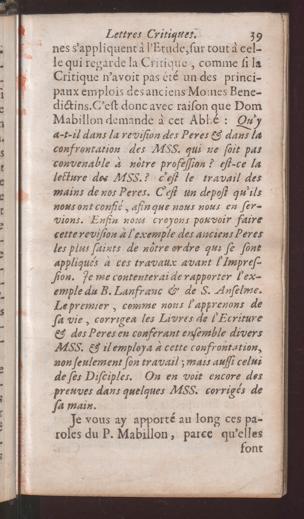 Lettres Critiques. 39
nes s'appliquent à l'Etude, sur tout à cel-
le qui regarde la Critique, comme si la
Critique n'avoit pas été un des princi-
paux emplois des anciens Moines Bene-
dictins. C'est donc avec raison que Dom
Mabillon demande à cet Abbé : Qu'y
a-t-il dans la revision des Peres & dans la
confrontation des MSS. qui ne soit pas
convenable à nôtre profession ? est-ce la
lecture des MSS. ? c'est le travail des
mains de nos Peres. C'est un depost qu'ils
nous ont confié, afin que nous nous en ser-
vions. Enfin nous croyons pouvoir faire
cette revision à l'exemple des anciens Peres
les plus saints de nôtre ordre qui se sont
appliqués à ces travaux avant l'Impres-
sion. Je me contenterai de rapporter l'ex-
emple du B. Lanfranc & de S. Anselme.
Le premier, comme nous l'apprenons de
sa vie, corrigea les Livres de l'Ecriture
& des Peres en conferant ensemble divers
MSS. & il employa à cette confrontation,
non seulement son travail ; mais aussi celui
de ses Disciples. On en voit encore des
preuves dans quelques MSS. corrigés de
sa main.
Je vous ay apporté au long ces pa-
roles du P. Mabillon, parce qu'elles
sont